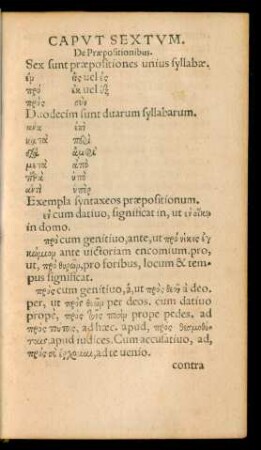 CAPVT SEXTVM.
De Præpositionibus.
Sex sunt præpositiones vnius syllabæ.
ἐν εἰς uel ἐς
πρό ἐκ uel ἐξ
πρός σύν
Duodecim sunt duarum syllabarum.
ἀνά ἐπί
κατά περί
διά ἀμφί
μετά ἀπό
παρά ὑπό
ἀντί ὑπέρ
Exempla syntaxeos præpositionum.
ἐν cum datiuo, significat in, ut ἐν οἴκῳ
in domo.
πρό cum genitiuo, ante, ut πρὸ νίκης ἐγ
κώμιον ante uictoriam encomium. pro,
ut, πρὸ θυρῶν, pro foribus, locum & tem
pus significat.
πρός cum genitiuo, à, ut πρὸς θεοῦ à deo.
per, ut πρὸς θεῶν per deos. cum datiuo
prope, πρὸς τοῖς ποσὶν prope pedes. ad
πρὸς τούτοις, ad hæc. apud, πρὸς
apud iudices. Cum accusatiuo, ad,
πρὸς σὲ ἔρχομαι, ad te uenio.
contra